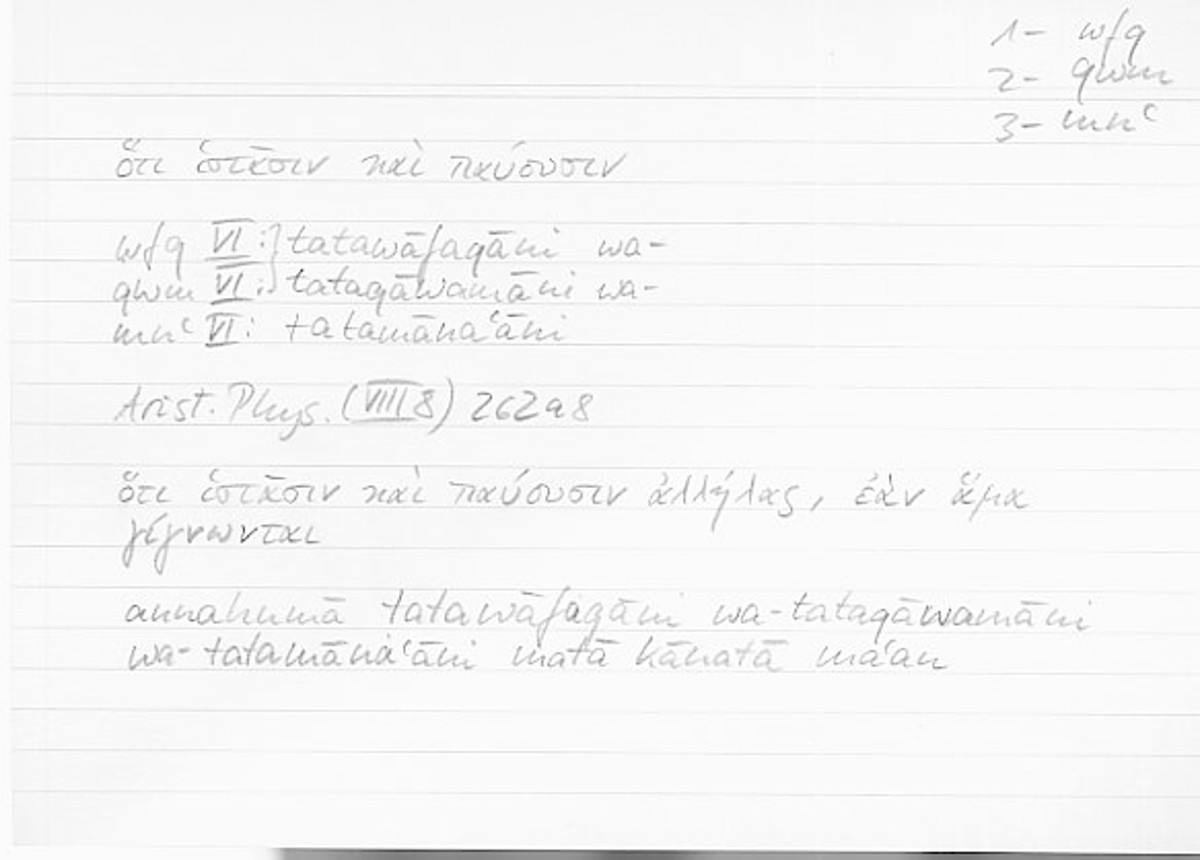 1- wfq
2- qwm
3- mnʿ
ὅτι ἱστᾶσιν καὶ παύουσιν
wfq VI :] tatawāfaqāni wa-
qwm VI :] tataqāwamāni wa-
mnʿ VI : tatamānaʿāni
Arist. Phys. (VIII 8) 262a8
ὅτι ἱστᾶσιν καὶ παύουσιν ἀλλήλας, ἐὰν ἅμα
γίγνωνται
annahumā tatawāfaqāni wa-tataqāwamāni
wa-tatamānaʿāni matā kānatā maʿan